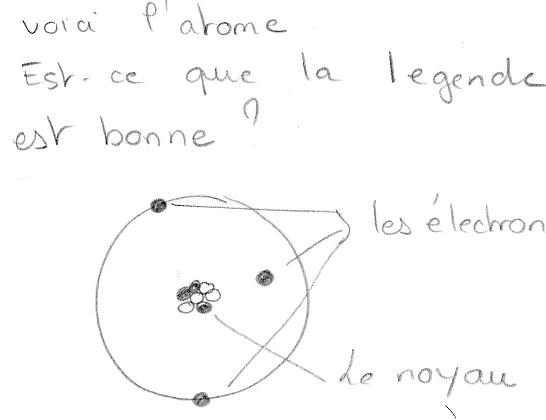 voici l'atome
Est-ce que la legende
est bonne ?
les électron
Le noyau